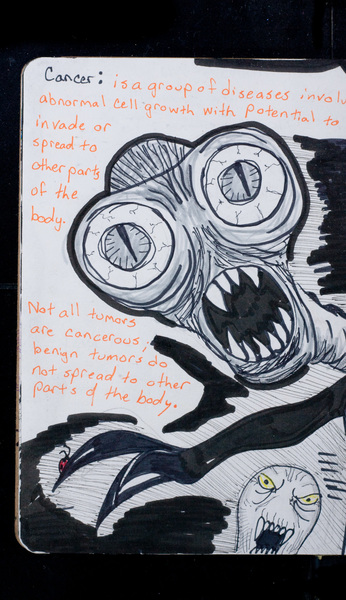 Cancer: is a group of diseases involv
abnormal cell growth with potential to
invade or
spread to
other parts
of the
body.
Not all tumors
are cancerous;
benign tumors do
not spread to other
parts of the body.